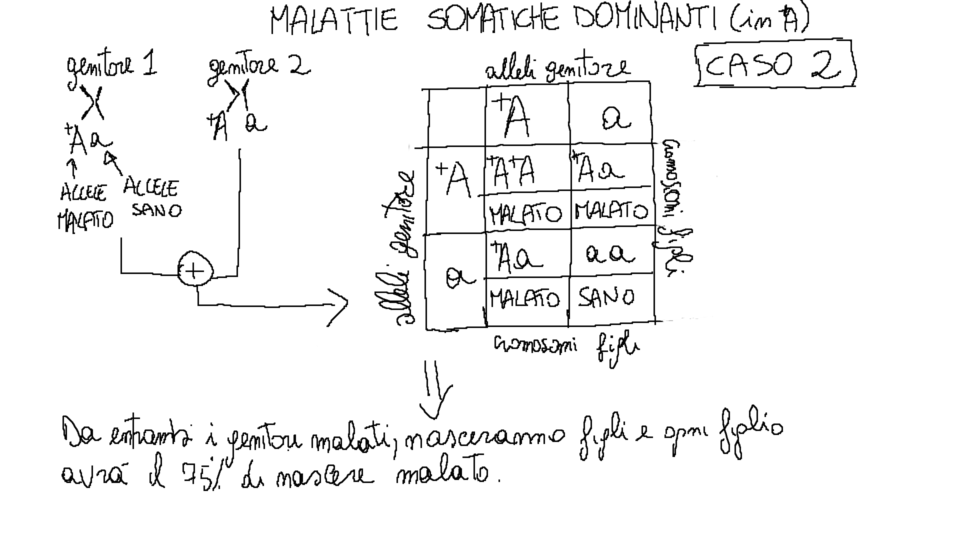 MALATTIE SOMATICHE DOMINANTI (in +A)
CASO 2
genitore 1
genitore 2
+A a
+A a
ALLELE MALATO
ALLELE SANO
+
alleli genitore
alleli genitore
+A a
+A +A+A +Aa
MALATO MALATO
a +Aa aa
MALATO SANO
cromosomi figli
cromosomi figli
Da entrambi i genitori malati, nasceranno figli e ogni figlio
avrá il 75% di nascere malato.